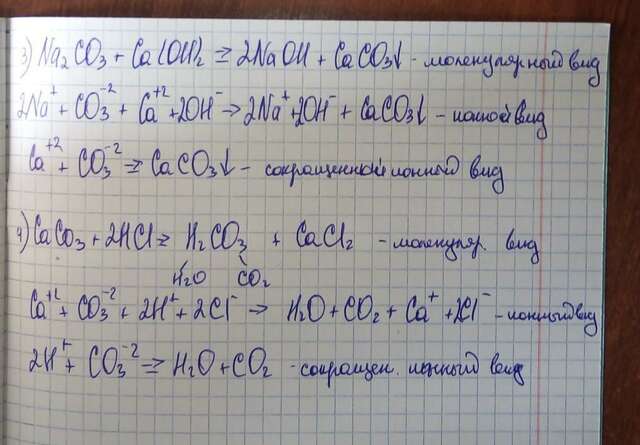 3) Na₂CO₃ + Ca(OH)₂ ⇉ 2NaOH + CaCO₃↓ - молекулярный вид
2Na⁺ + CO₃⁻² + Ca⁺² + 2OH⁻ → 2Na⁺ + 2OH⁻ + CaCO₃↓ - ионный вид
Ca⁺² + CO₃⁻² ⇉ CaCO₃↓ - сокращенный ионный вид
4) CaCO₃ + 2HCl ⇉ H₂CO₃ + CaCl₂ - молекуляр. вид
H₂O CO₂
Ca⁺² + CO₃⁻² + 2H⁺ + 2Cl⁻ → H₂O + CO₂ + Ca⁺ + 2Cl⁻ - ионный вид
2H⁺ + CO₃⁻² ⇉ H₂O + CO₂ - сокращен. ионный вид